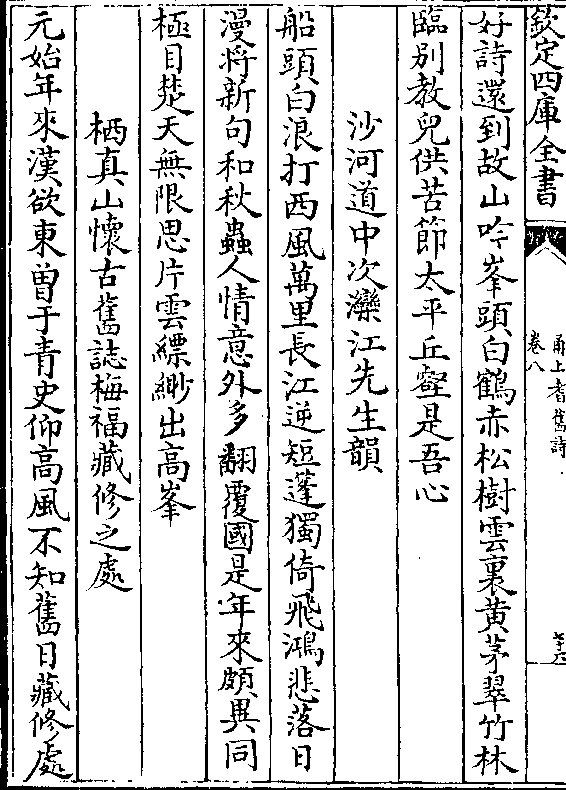 欽定四庫全書
甬上耆舊詩
卷八
好詩還到故山吟峯頭白鶴赤松樹雲裏黄茅翠竹林
臨别教兒供苦節太平丘壑是吾心
沙河道中次灤江先生韻
船頭白浪打西風萬里長江逆短蓬獨倚飛鴻悲落日
漫將新句和秋蟲人情意外多翻覆國是年來頗異同
極目楚天無限思片雲縹緲出高峯
栖真山懷古舊誌梅福藏修之處
元始年來漢欲東曽于青史仰高風不知舊日藏修處